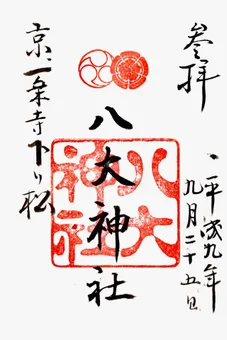 参拝
平成九年
九月二十五日
八大神社
八大神社
京、一乗寺下り松